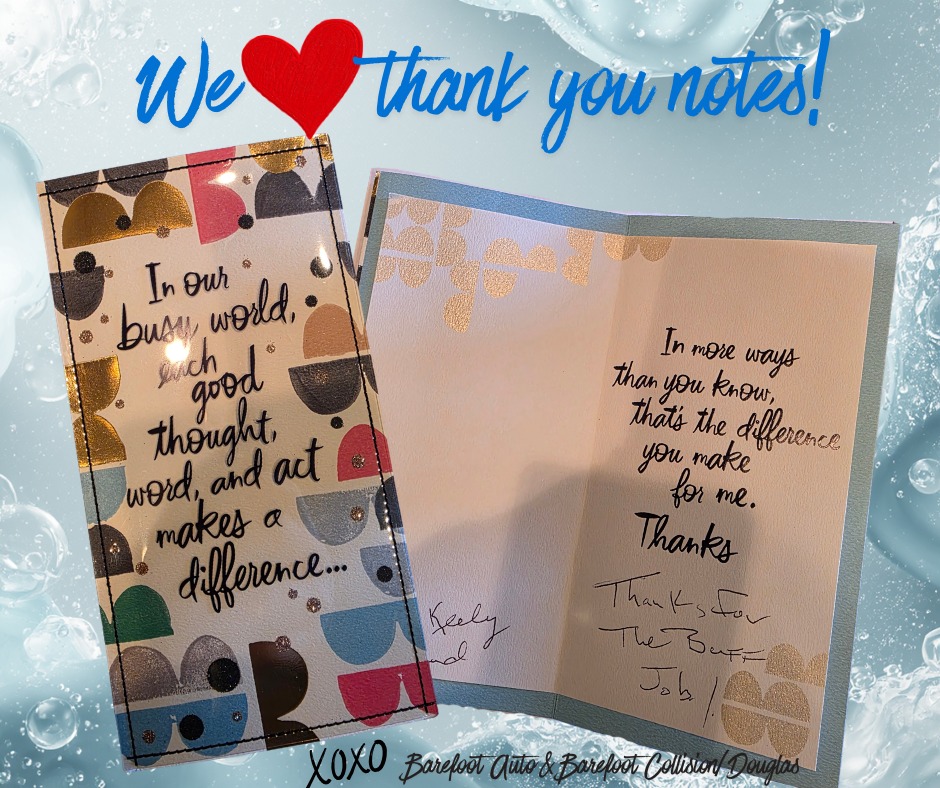 We thank you notes!
In our
busy world,
each
good
thought,
word, and act
makes a
difference...
In more ways
than you know,
that's the difference
you make
for me.
Thanks
Keely
Thanks For
The Buff
Job!
XOXO Barefoot Auto & Barefoot Collision/Douglas